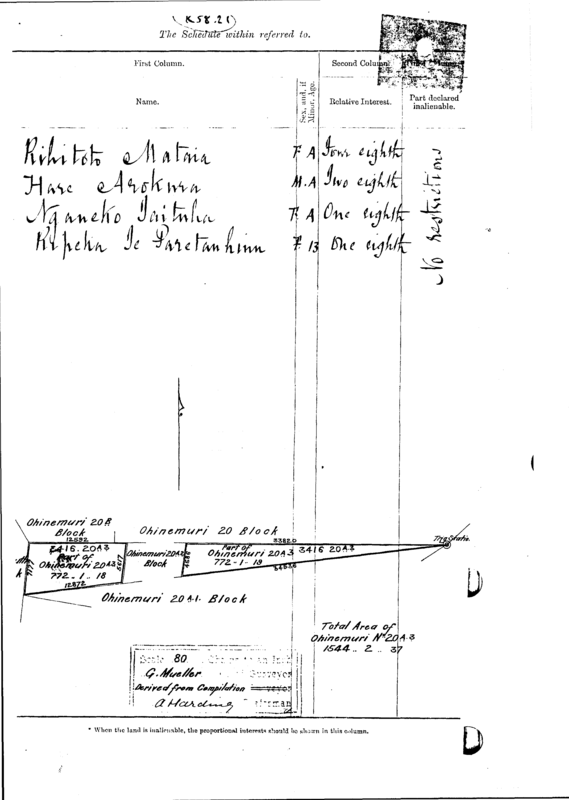 (K58.21)
The Schedule within referred to.
First Column. Second Column.
Name. Sex, and, if Minor, Age. Relative Interest. Part declared inalienable.
Rihitoto Mataia F A Four eighth
Hare Arokura M.A Two eighth
Nganeko Taituha F. A One eighth
Ripeka Te Paretauhinu F. 13 One eighth
No restrictions
Ohinemuri 20 B
Block
12592
Ohinemuri 20 Block
33820
3416. 20A3
Part of
Ohinemuri 20A3
772 - 1 .. 18
12872
7777
5617
Ohinemuri 20A2
Block
4686
Part of
Ohinemuri 20A3 3416 20A3
772 - 1 - 18
34636
Ohinemuri 20 A.1. Block
Total Area of
Ohinemuri No 20A.3
1544 .. 2 .. 37
Scale 80
G. Mueller Surveyor
Derived from Compilation
A Harding
* When the land is inalienable, the proportional interests should be shown in this column.
D
D